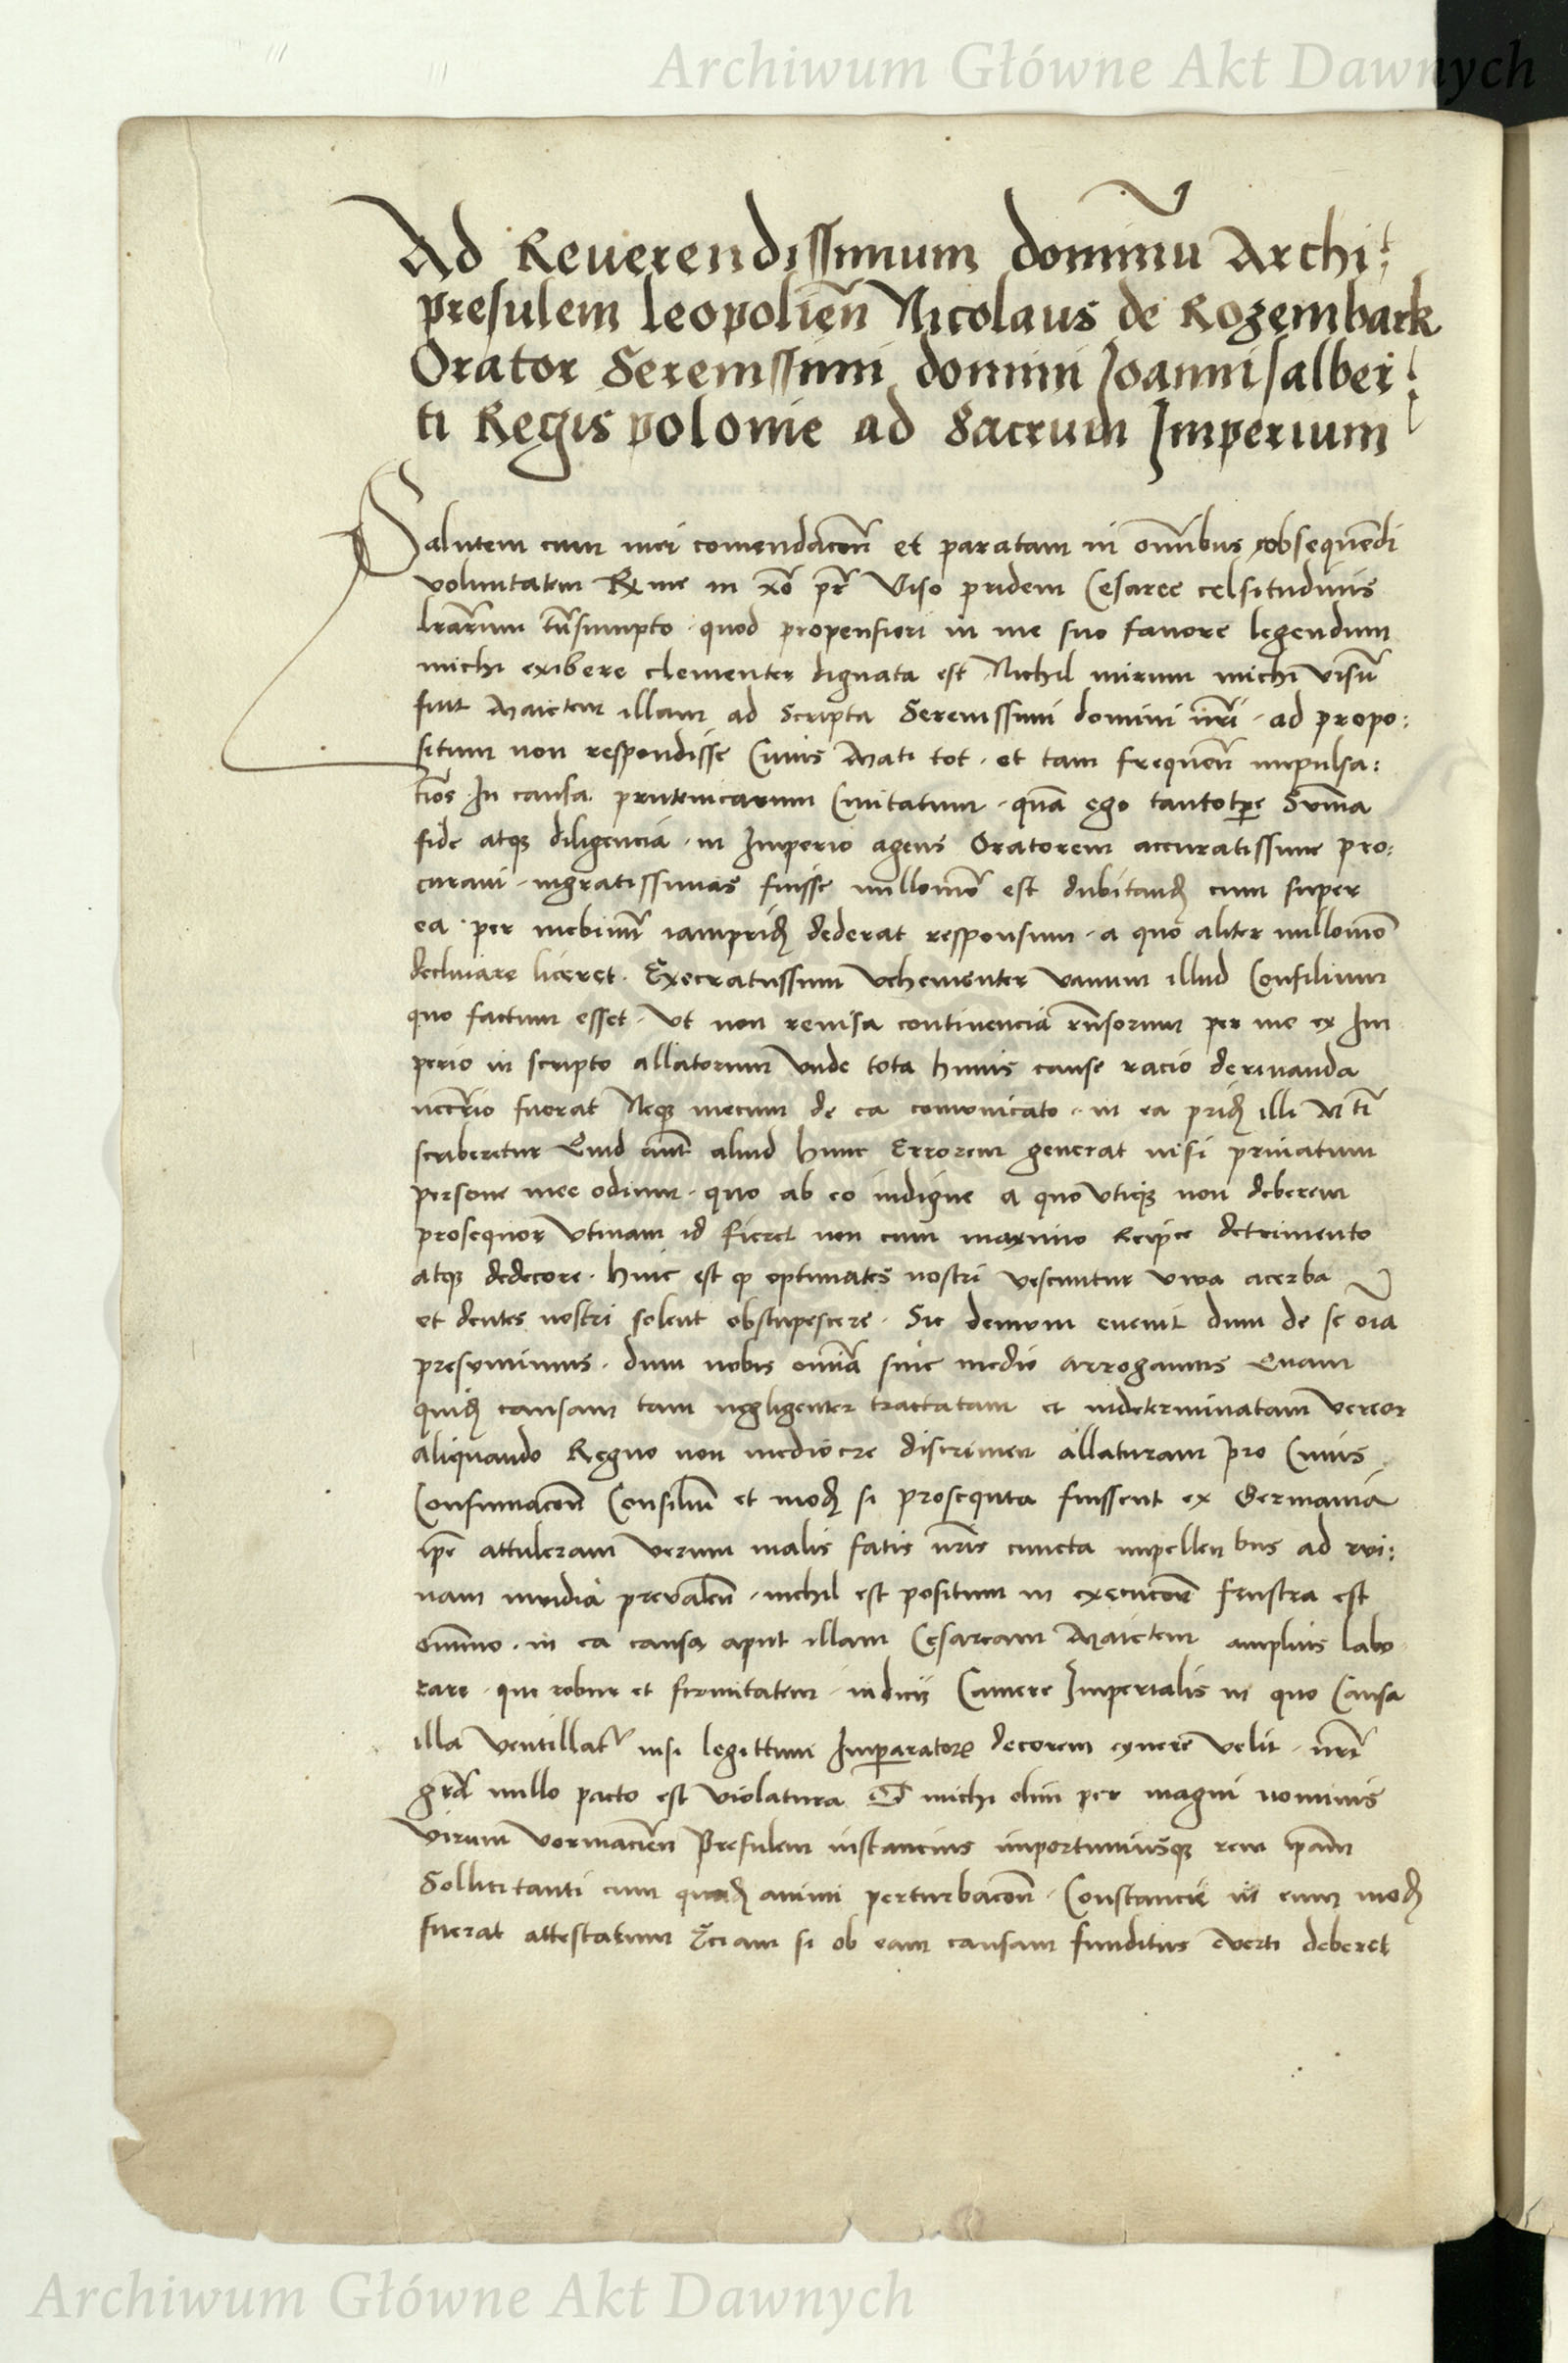 Archiwum Główne Akt Dawnych
Ad Reuerendissimum dominũ Archi:
presulem leopolieñ Nicolaus de Rozembark
Orator Serenissimi domini Joannisalber:
ti Regis polonie ad Sacrum Imperium
Salutem cum mei comendacoñ et paratam in om̃ibus obsequendi
voluntatem Rx̃me in xõ pr̃ Viso pridem Cesaree celsitudinis
lrãrum trñsumpto · quod propensiori in me suo fauore legendum
michi exibere clementer dignata est Nichil mirum michi visũ
fuit Maietem illam ad scripta Serenissimi domini nr̃i · ad propo:
situm non respondisse Cuius Mati tot · et tam frequeñ impulsa:
tiõs In causa prutenicarum Ciuitatum · quã ego tantotpe Sum̃a
fide atqꝫ diligencia · in Imperio agens Oratorem accuratissime pro:
curaui · ingratissimas fuisse nullomõ est dubitandꝫ cum super
ea · per me iampridꝫ dederat responsum · a quo aliter nullomõ
declinare liceret · Execratussum vehementer vanum illud Consilium
quo factum esset · vt non reuisa continencia rñsorum per me ex Im
perio in scripto allatorum vnde tota huius cause racio deriuanda
necr̃io fuerat Neqꝫ mecum de ea comunicato · in ea pridꝫ illi Mti
scriberetur Quid aũt aliud hunc Errorem generat nisi priuatum
persone mee odium · quo ab eo indigne a quo vtiqꝫ non deberem
prosequor vtinam id fieret non cum maximo Reipce detrimento
atqꝫ dedecore · hinc est ꝙ optimates nostri vescuntur vwa acerba
et dentes nostri solent obstupescere · Sic demum euenit dum de se oĩa
presumimus · dum nobis om̃ia sine medio arrogamus Quam
quidꝫ causam tam negligenter tractatam et indeterminatam vereor
aliquando Regno non mediocre discrimen allaturam pro Cuius
Consumacoñ Consiliũ et modꝫ si prosequta fuissent ex Germania
ip̃e attuleram verum malis fatis nr̃is cuncta impellenbus ad rui:
nam inuidia preualeñ · nichil est positum in execucoñe frustra est
om̃ino · in ea causa aput illam Cesaream Maietem amplius labo
rare · qui robur et firmitatem · iudicij Camere Imperialis in quo Causa
illa ventillatr̃ nisi legittimi Imparatorꝫ decorem velit · nr̃i
gr̃a nullo pacto est violatura Et michi olim per magni nominis
virum vormacieñ Presulem instancius importuniusqꝫ rem ip̃am
Sollicitanti cum quadꝫ animi perturbacoñ · Constancie in eum modꝫ
fuerat attestatum Eciam si ob eam causam funditus euerti deberet
Archiwum Główne Akt Dawnych